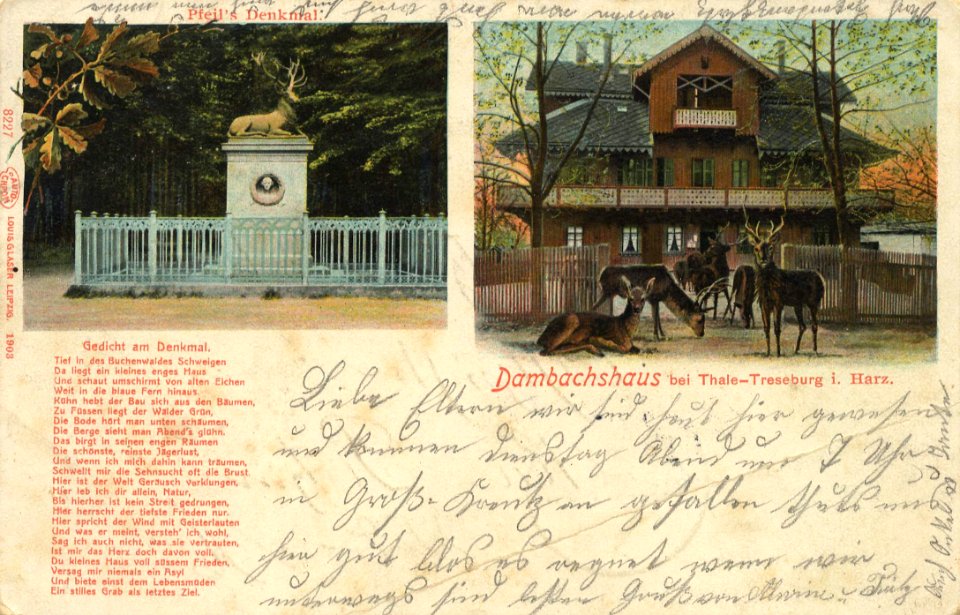 Pfeil's Denkmal.
8227
LOUIS GLASER LEIPZIG. 1903
Gedicht am Denkmal.
Tief in des Buchenwaldes Schweigen
Da liegt ein kleines enges Haus
Und schaut umschirmt von alten Eichen
Weit in die blaue Fern hinaus.
Kühn hebt der Bau sich aus den Bäumen,
Zu Füssen liegt der Wälder Grün,
Die Bode hört man unten schäumen,
Die Berge sieht man Abend's glühn.
Das birgt in seinen engen Räumen
Die schönste, reinste Jägerlust,
Und wenn ich mich dahin kann träumen,
Schwellt mir die Sehnsucht oft die Brust.
Hier ist der Welt Geräusch verklungen,
Hier leb ich dir allein, Natur,
Bis hierher ist kein Streit gedrungen,
Hier herrscht der tiefste Frieden nur.
Hier spricht der Wind mit Geisterlauten
Und was er meint, versteh' ich wohl,
Sag ich auch nicht, was sie vertrauten,
Ist mir das Herz doch davon voll.
Du kleines Haus voll süssem Frieden,
Versag mir niemals ein Asyl
Und biete einst dem Lebensmüden
Ein stilles Grab als letztes Ziel.
Dambachshaus bei Thale-Treseburg i. Harz.
Liebe Eltern wir sind heut hier gewesen
und kommen Dienstag Abend um 7 Uhr
in Groß-Kreutz an gefallen thuts uns
hier gut blos es regnet wenn wir
unterwegs sind besten Gruß von